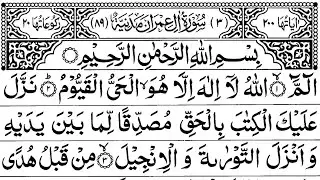 اٰیَاتُهَا ۲۰۰ (۳) سُوْرَةُ اٰلِ عِمْرٰنَ مَدَنِیَّةٌ (۸۹) رُكُوْعَاتُهَا ۲۰
بِسْمِ اللّٰهِ الرَّحْمٰنِ الرَّحِیْمِ
الٓمَّٓ ۙ﴿۱﴾ اللّٰهُ لَاۤ اِلٰهَ اِلَّا هُوَ ۙ الْحَیُّ الْقَیُّوْمُ ؕ﴿۲﴾ نَزَّلَ
عَلَیْكَ الْكِتٰبَ بِالْحَقِّ مُصَدِّقًا لِّمَا بَیْنَ یَدَیْهِ
وَ اَنْزَلَ التَّوْرٰىةَ وَ الْاِنْجِیْلَ ۙ﴿۳﴾ مِنْ قَبْلُ هُدًی